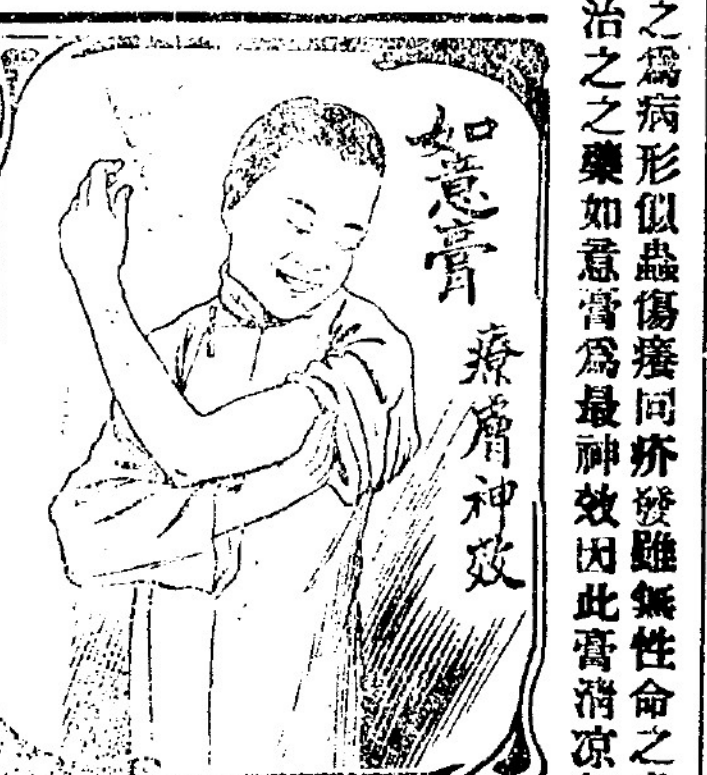 之爲病形似蟲傷癢同疥發雖無性命之
治之之藥如意膏爲最神效因此膏清凉
如意膏
療膚神效